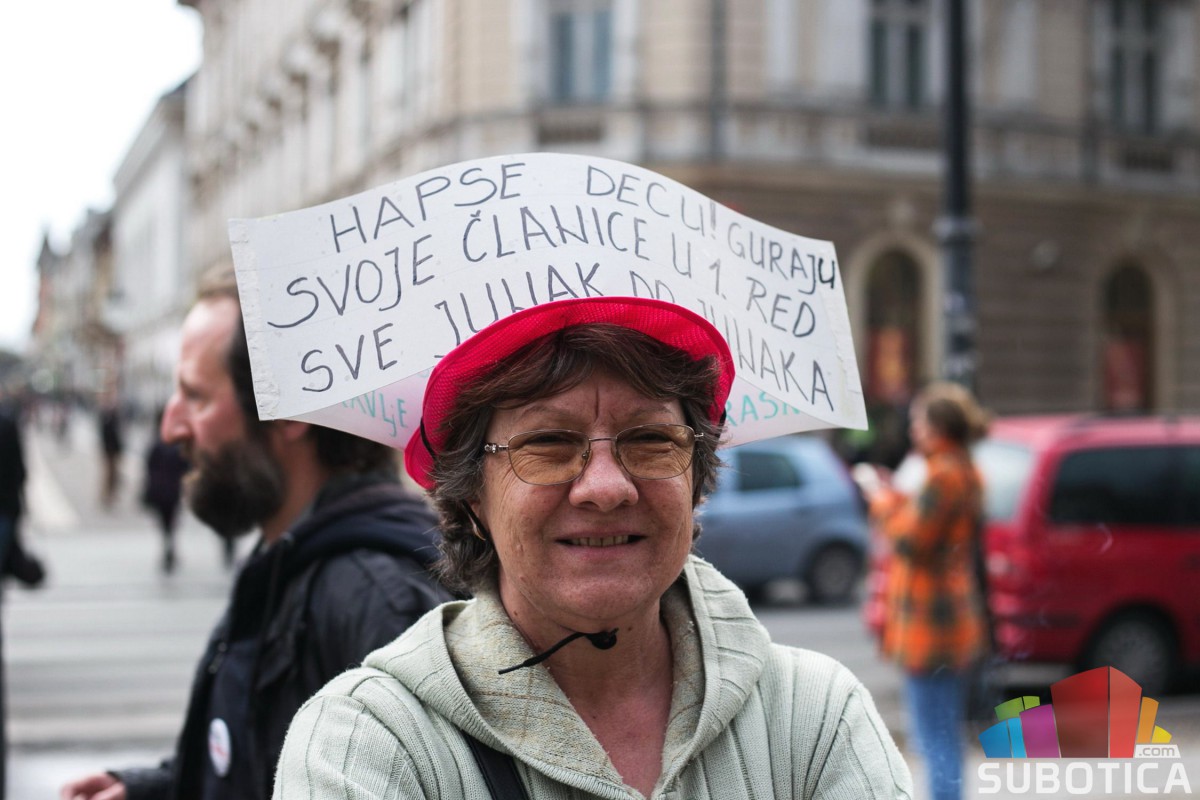 HAPSE DECU! GURAJU
SVOJE ČLANICE U 1. RED
SVE JUNAK DO JUNAKA
.com
SUBOTICA